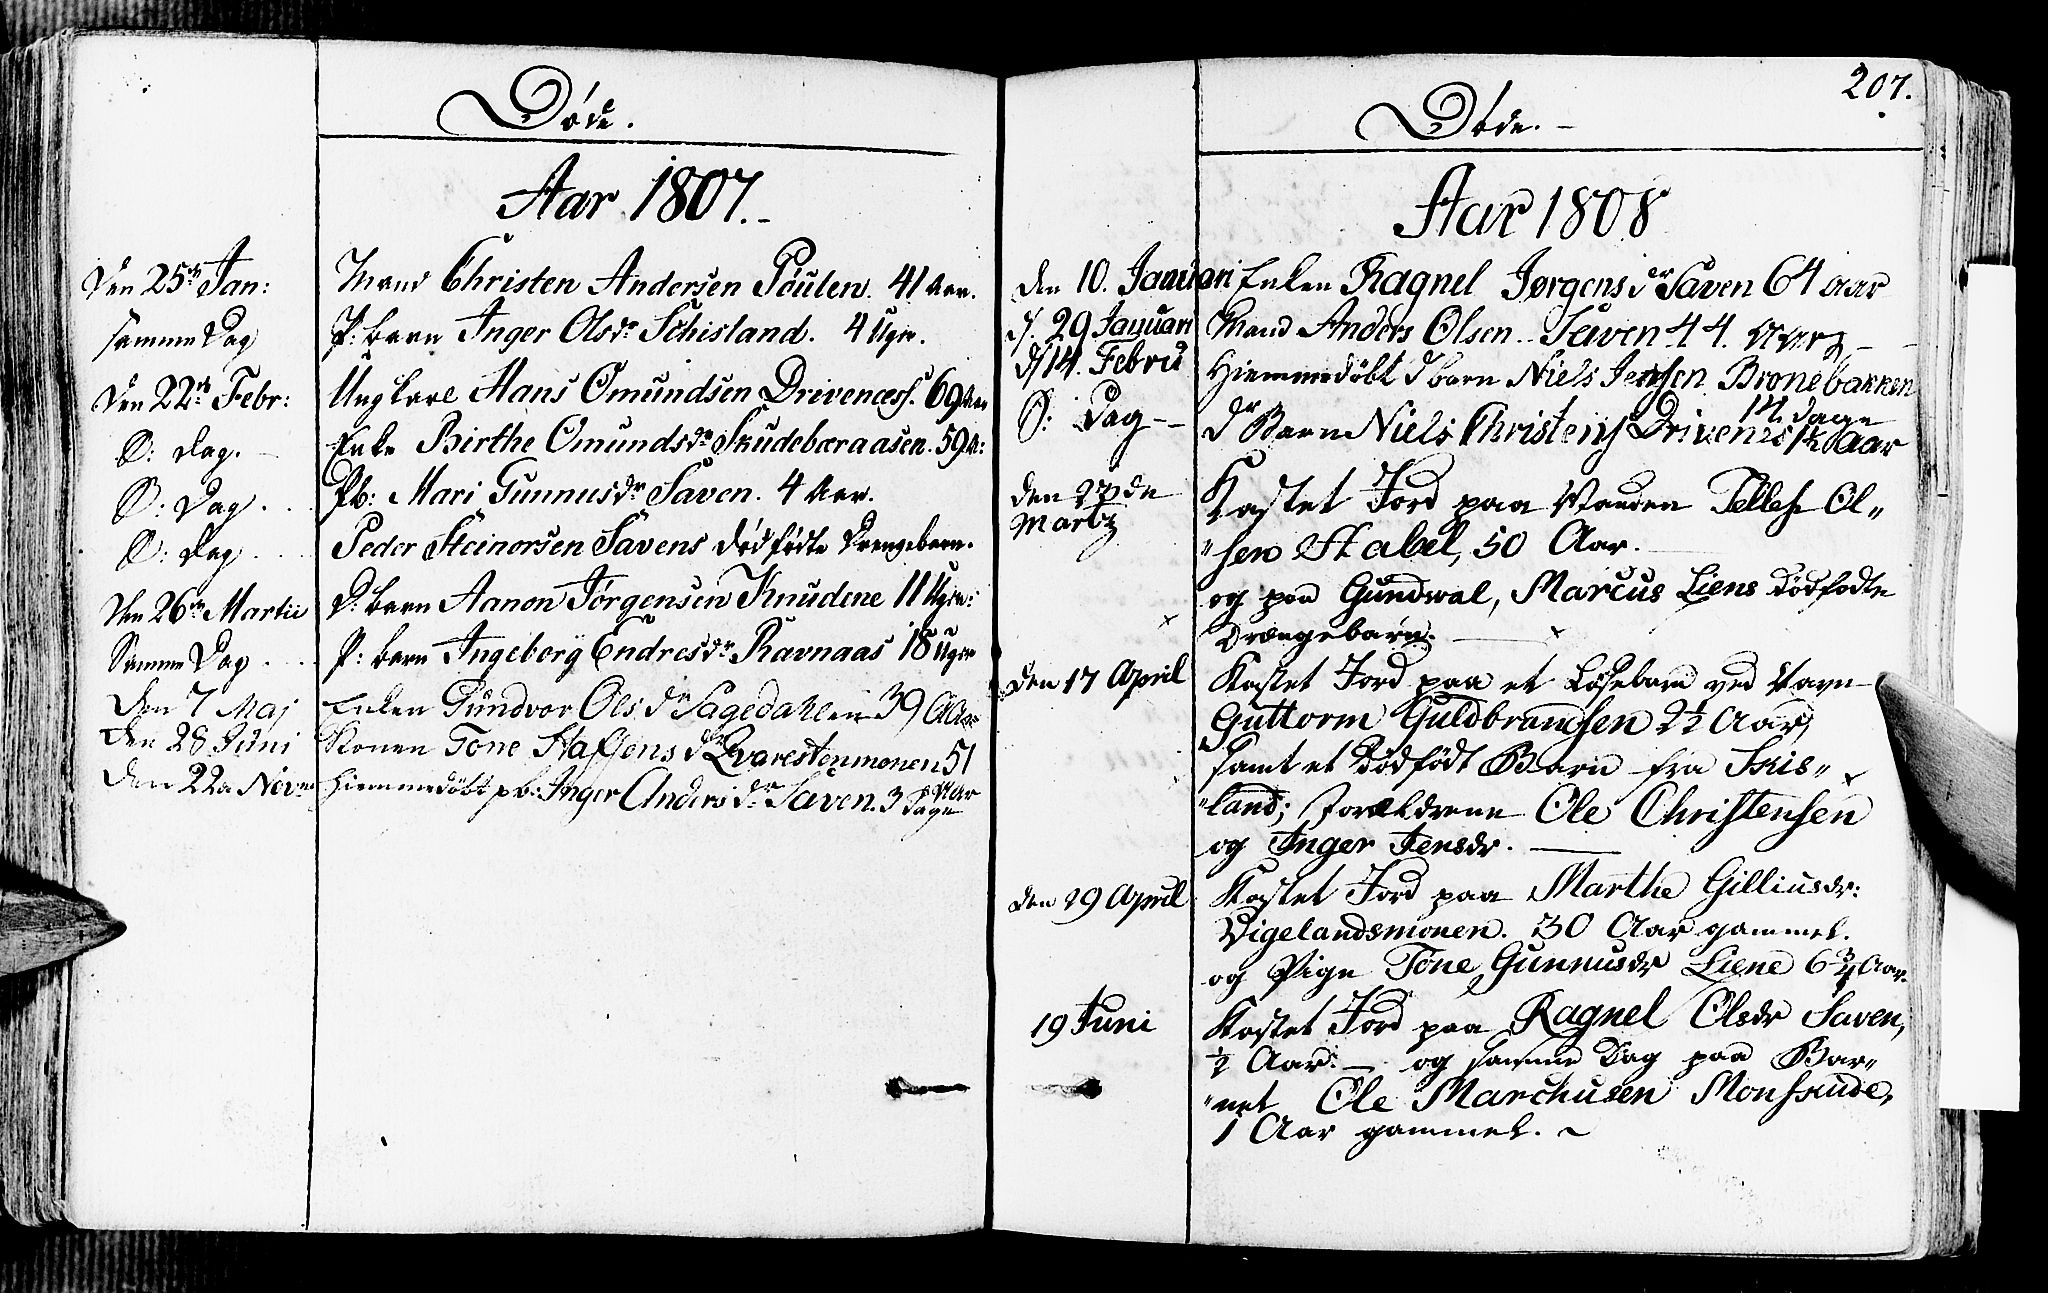 Døde.
Aar 1807.
Den 25de Jan: Mand Christen Andersen Poulen. 41 Aar.
samme Dag P: barn Inger Olsdr Schisland. 4 Uger.
Den 22de Febr: Ungkarl Hans Omundsen Drivenes. 69 Aar
D: Dag. Enke Birthe Omundsdr Skudeberaasen. 59 A:
D: Dag. Pb: Mari Gunnusdr Saven. 4 Aar.
D: Dag Peder Steinorsen Savens dødfødte Drengebarn.
Den 26de Martii D: barn Aanon Jørgensen Knudene 11 Uger:
Samme Dag P: barn Ingeborg Endresdr Ravnaas 18 Uger
Den 7 Maj Enken Gundvor Olsdr Sagedahlen 39 Aar
Den 28 Juni Konen Tone Staffensdr Qvarestenmonen 51 Aar
Den 22de Novem Hiemmedøbt pb: Inger Andersdr Saven. 3 Dage
207.
Døde.
Aar 1808
den 10. Januari Enken Ragnel Jørgensdr Saven 64 aar
d. 29 Januari Mand Anders Olsen Saven 44. Aar
d 14. Febru Hiemmedøbt d barn Niels Jensen Bronebakken
14 dage
D: Dag dr Barn Niels Christens Drivenes 1½ Aar
den 27de Kastet Jord paa Manden Tellef Ol„
Martz „sen Stabel, 50 Aar.
og paa Gundwal, Marcus Liens dødfødte
Drængebarn.
den 17 April Kastet Jord paa et Løsebarn ved Navn
Guttorm Guldbrandsen 2½ Aar,
samt et Dødfødt Barn fra Skis„
„land; Forældrene Ole Christensen
og Inger Jensdr.
den 29 April Kastet Jord paa Marthe Gilliusdr:
Vigelandsmonen. 30 Aar gammel.
og Pige Tone Gunnusdr Liene 6¾ Aar.
19 Juni Kastet Jord paa Ragnel Olsdr Saven,
½ Aar. — og samme Dag paa Bar„
„net Ole Marchusen Monskude,
1 Aar gammel.